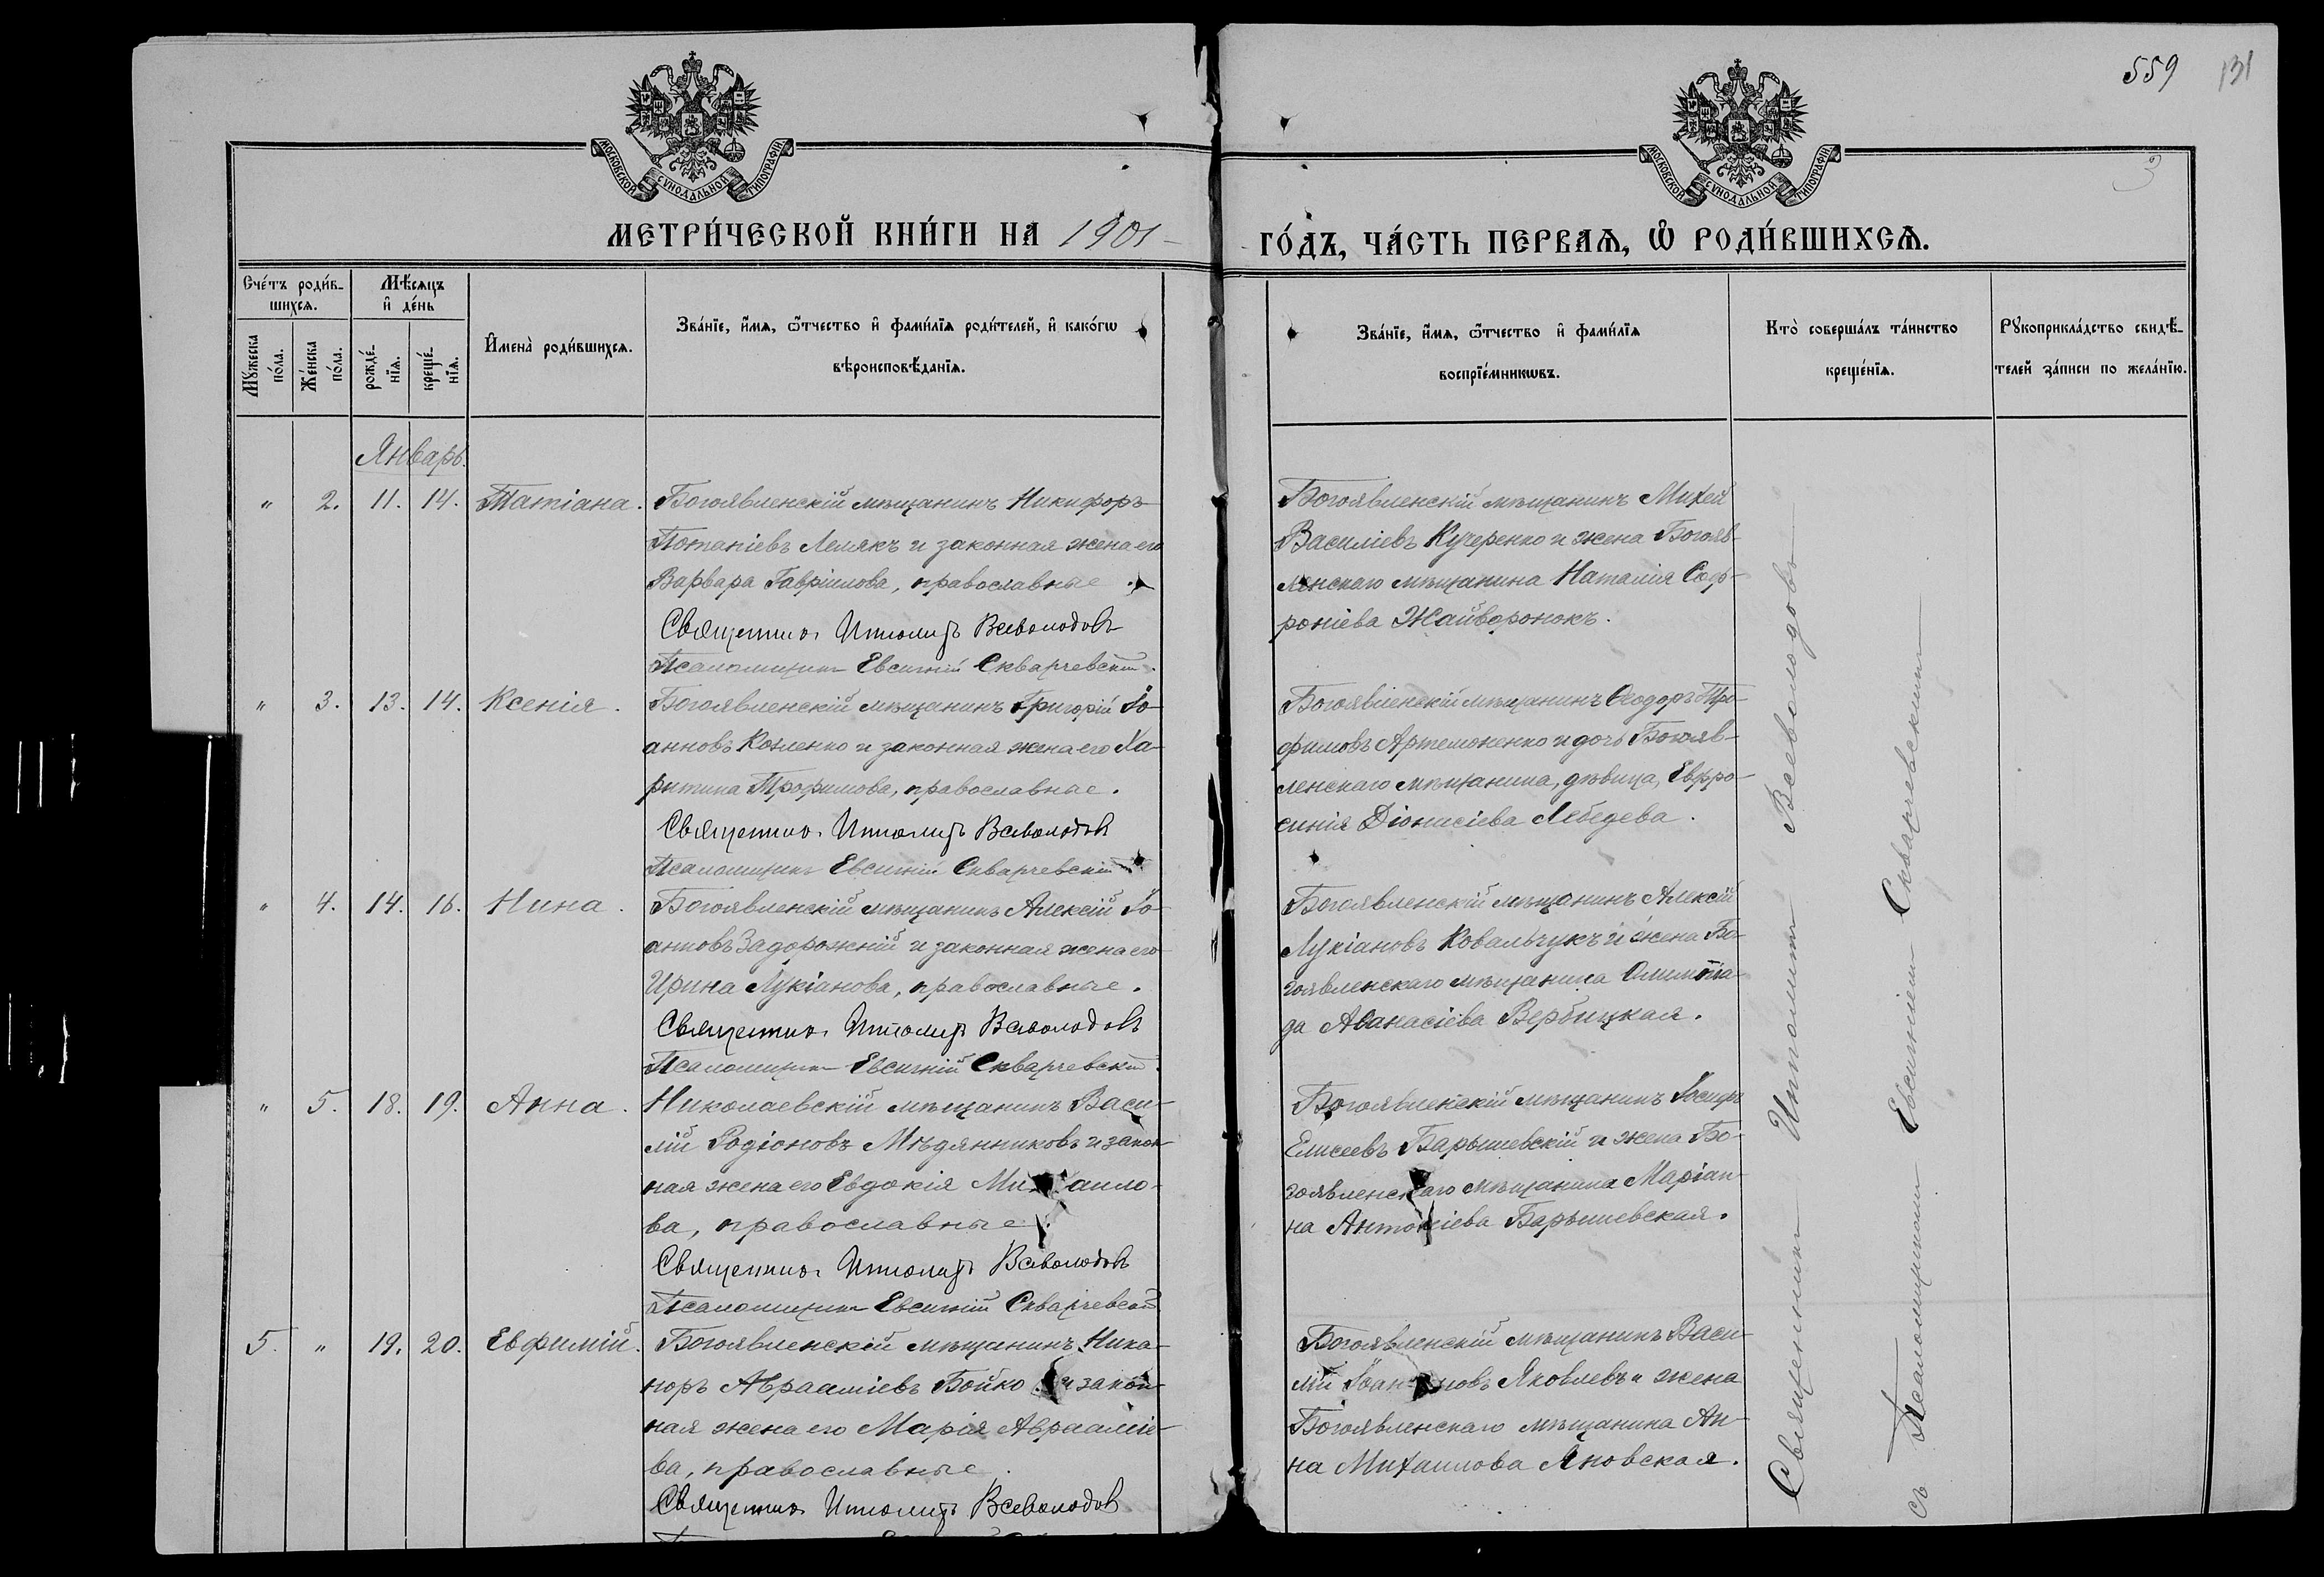 559 131
3
МОСКОВСКОЙ СУНОДАЛЬНОЙ ТИПОГРАФІИ
МОСКОВСКОЙ СУНОДАЛЬНОЙ ТИПОГРАФІИ
МЕТРИ́ЧЕСКОЙ КНИ́ГИ НА 1901
ГО́ДЪ, ЧА́СТЬ ПЕРВАѦ, Ѡ҆ РОДИ́ВШИХСѦ.
Сче́тъ роди́в-
шихсѧ.
Мѣ́сѧцъ
и҆ де́нь
Мꙋ́жеска
по́ла.
Же́нска
по́ла.
рожде́-
нїѧ.
креще́-
нїѧ.
И҆мена̀ роди́вшихсѧ.
Зва́нїе, и҆́мѧ, ѻ҆́тчество и҆ фами́лїѧ роди́телей, и҆ како́гѡ
вѣроисповѣ́данїѧ.
Зва́нїе, и҆́мѧ, ѻ҆́тчество и҆ фами́лїѧ
воспрїе́мникѡвъ.
Кто̀ соверша́лъ та́инство
креще́нїѧ.
Рꙋкоприкла́дство свидѣ́-
телей за́писи по жела́нїю.
Январь.
" 2. 11. 14. Татіана.
Богоявленскій мѣщанинъ Никифоръ
Потапіевъ Лемякъ и законная жена его
Варвара Гавріилова, православные.
Священникъ Ипполитъ Всеволодовъ
Псаломщикъ Евсигній Скварчевскій.
Богоявленскій мѣщанинъ Михей
Василіевъ Кучеренко и жена Богояв-
ленскаго мѣщанина Наталія Соф-
роніева Жайворонокъ.
" 3. 13. 14. Ксенія.
Богоявленскій мѣщанинъ Григорій Іо-
анновъ Козленко и законная жена его Ха-
ритина Трофимова, православные.
Священникъ Ипполитъ Всеволодовъ
Псаломщикъ Евсигній Скварчевскій
Богоявленскій мѣщанинъ Ѳеодоръ Тро-
фимовъ Артемоненко и дочь Богояв-
ленскаго мѣщанина, дѣвица, Евфро-
синія Діонисіева Лебедева.
" 4. 14. 16. Нина.
Богоявленскій мѣщанинъ Алексій Іо-
анновъ Задорожній и законная жена его
Ирина Лукіанова, православные.
Священникъ Ипполитъ Всеволодовъ
Псаломщикъ Евсигній Скварчевскій.
Богоявленскій мѣщанинъ Алексій
Лукіановъ Ковальчукъ и жена Бо-
гоявленскаго мѣщанина Олимпіа-
да Аѳанасіева Вербицкая.
" 5. 18. 19. Анна.
Николаевскій мѣщанинъ Васи-
лій Родіоновъ Мѣдянниковъ и закон-
ная жена его Евдокія Михаило-
ва, православные.
Священникъ Ипполитъ Всеволодовъ
Псаломщикъ Евсигній Скварчевскій
Богоявленскій мѣщанинъ Іосифъ
Елисеевъ Барышевскій и жена Бо-
гоявленскаго мѣщанина Маріан-
на Антоніева Барышевская.
5. " 19. 20. Евфимій.
Богоявленскій мѣщанинъ Ника-
норъ Авраамиевъ Бойко и закон-
ная жена его Марія Авраамие-
ва, православные.
Священникъ Ипполитъ Всеволодовъ
Богоявленскій мѣщанинъ Васи-
лій Іоанновъ Яковлевъ и жена
Богоявленскаго мѣщанина Ан-
на Михаилова Яновская.
Священникъ Ипполитъ Всеволодовъ
съ Псаломщикомъ Евсигніемъ Скварчевскимъ